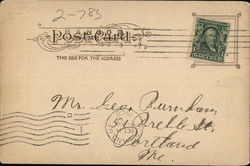 2-783
POST CARD
THIS SIDE FOR THE ADDRESS
Mr. Geo. Burnham
51 Preble St.
Portland
Me.